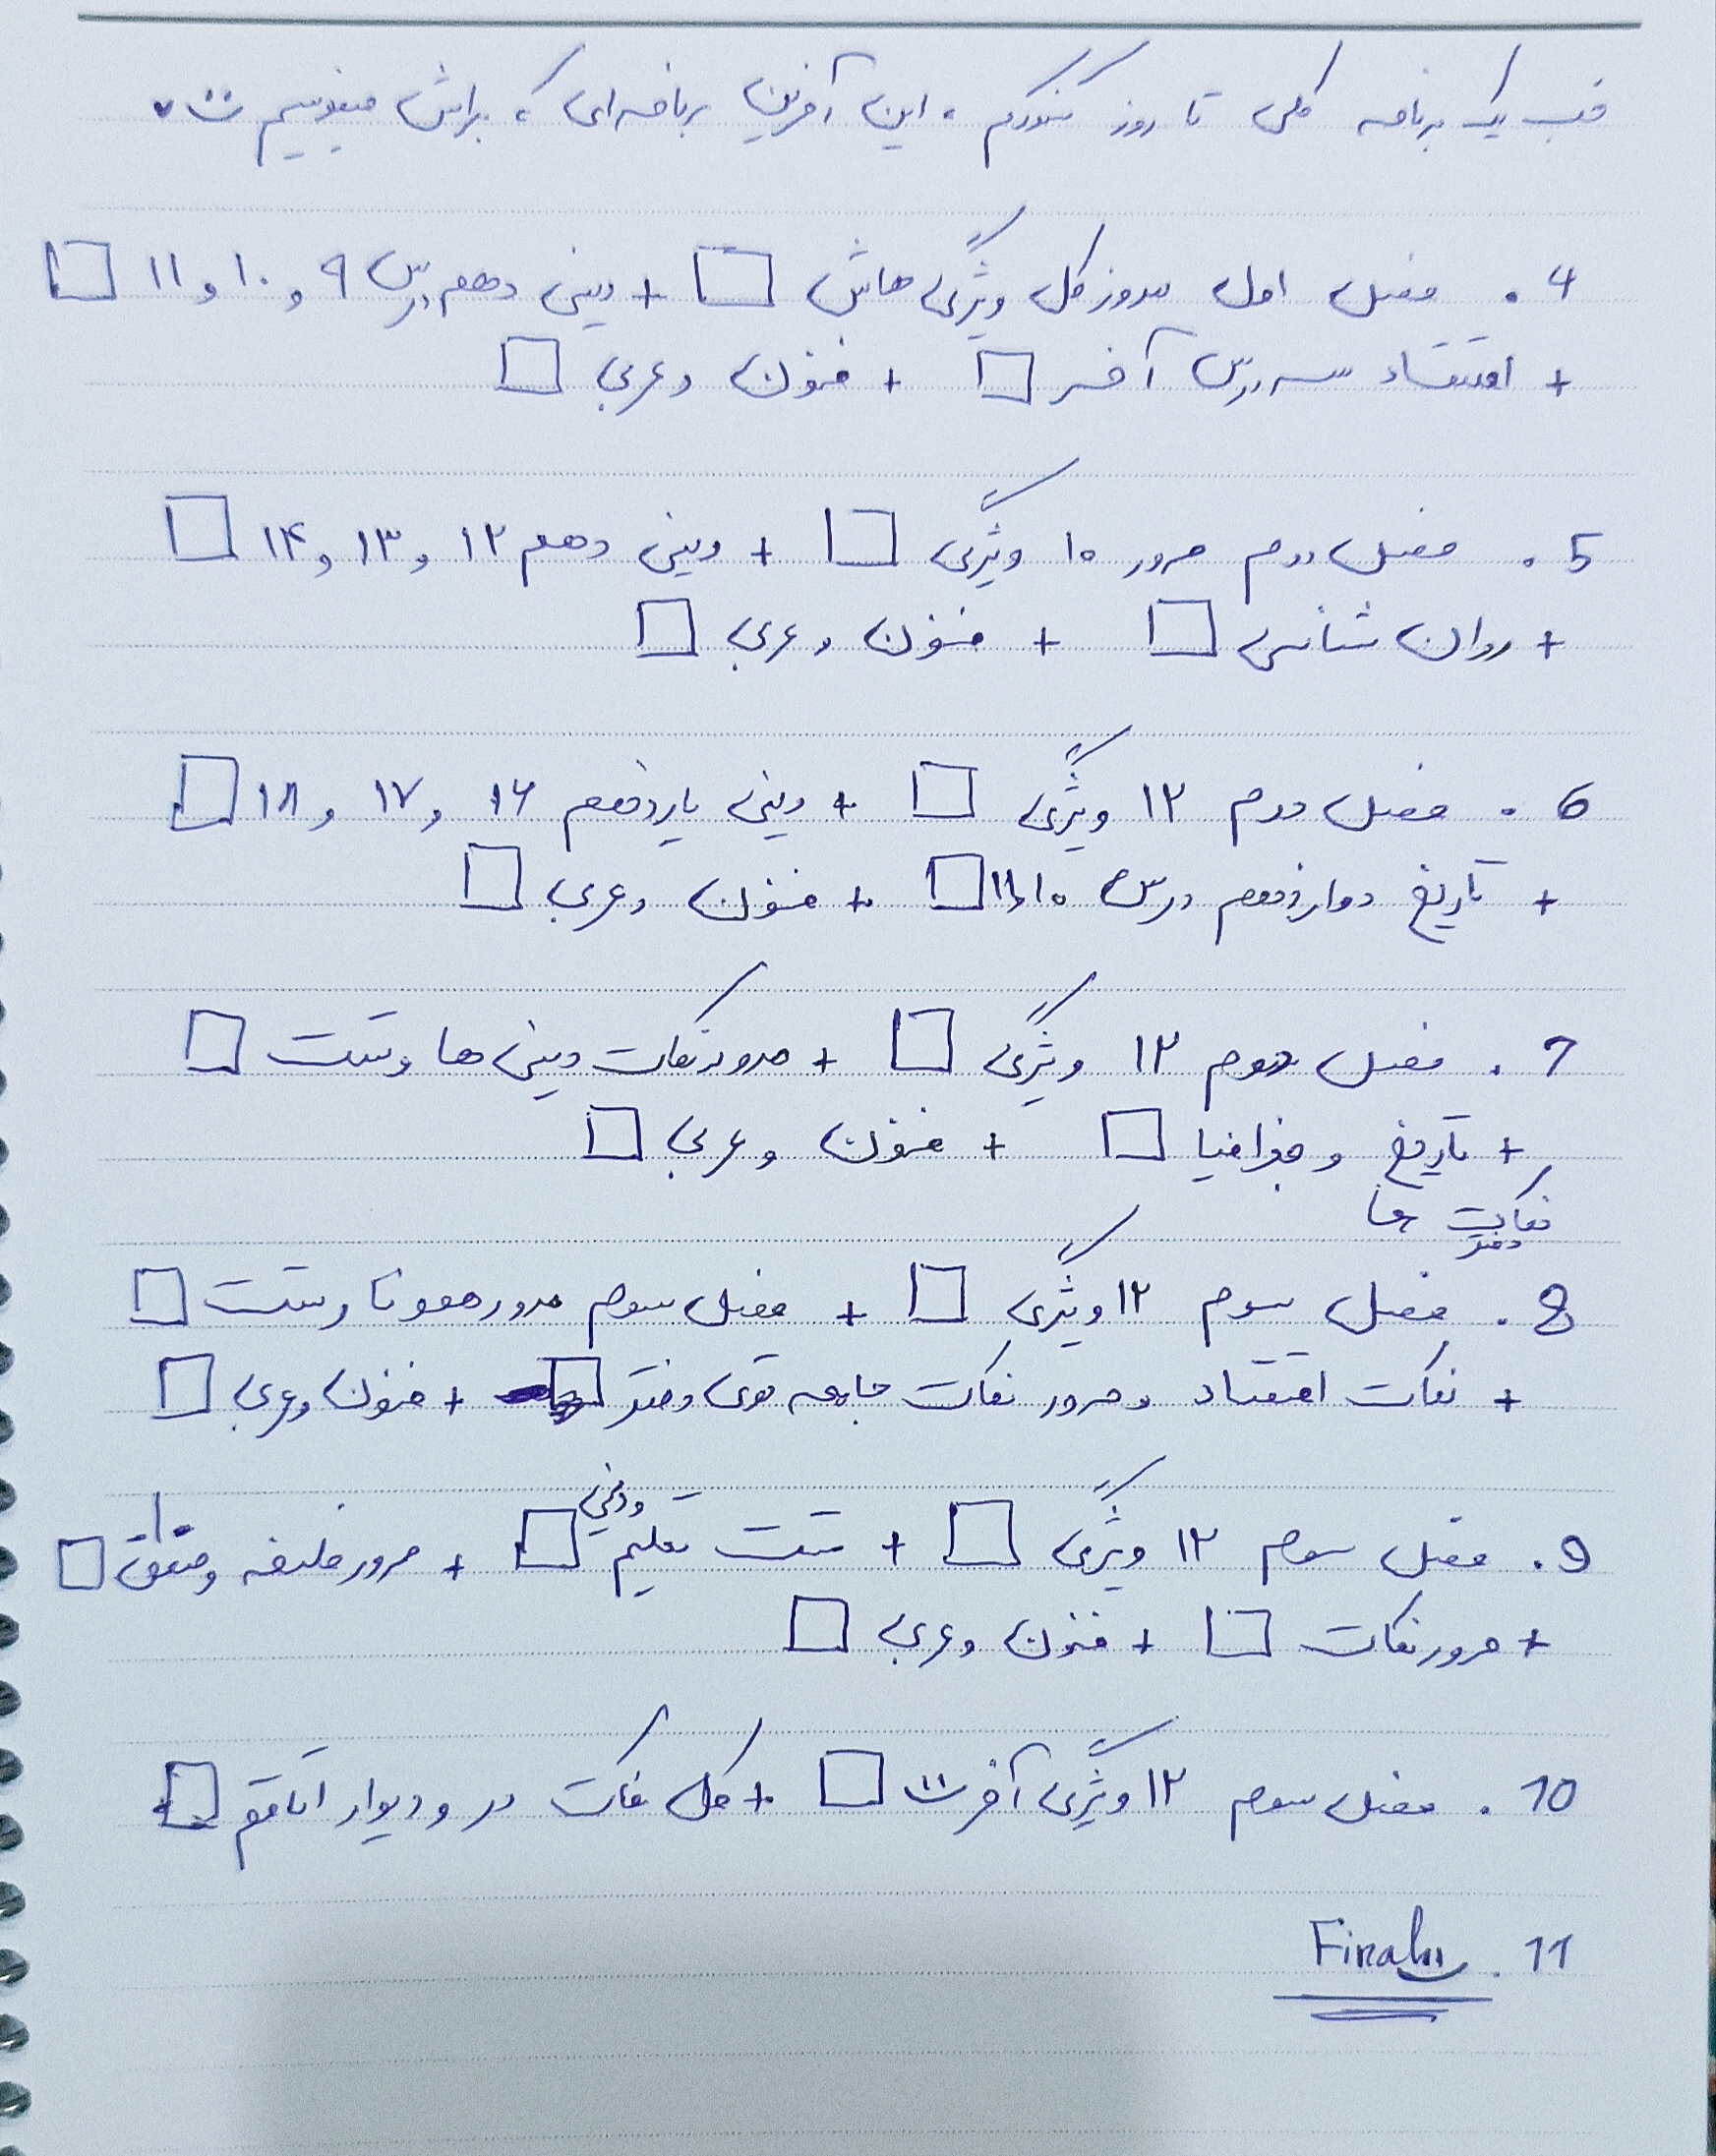 خب یک برنامه کلی تا روز کنکورم، این آخرین برنامه‌ای که براش مینویسم
4. فصل اول مرور کل ویژگی هاش □ + دینی دهم درس ۹ و ۱۰ و ۱۱ □
+ اقتصاد سه درس آخر □ + فنون و عربی □
5. فصل دوم مرور ۱۰ ویژگی □ + دینی دهم ۱۲ و ۱۳ و ۱۴ □
+ روان شناسی □ + فنون و عربی □
6. فصل دوم ۱۲ ویژگی □ + دینی یازدهم ۱۶ و ۱۷ و ۱۸ □
+ تاریخ دوازدهم درس ۱۰ و ۱۱ □ + فنون و عربی □
7. فصل دوم ۱۲ ویژگی □ + مرور نکات دینی ها و تست □
+ تاریخ و جغرافیا □ + فنون و عربی □
نکات ها
دفتر
8. فصل سوم ۱۲ ویژگی □ + فصل سوم مرور همونا و تست □
+ نکات اقتصاد و مرور نکات جامعه توی دفتر □ + فنون و عربی □
9. فصل سوم ۱۲ ویژگی □ + تست تعلیم ودینی □ + مرور فلسفه و منطق □
+ مرور نکات □ + فنون و عربی □
10. فصل سوم ۱۲ ویژگی آخر □ + کل نکات در و دیوار اتاقم □
11. Final